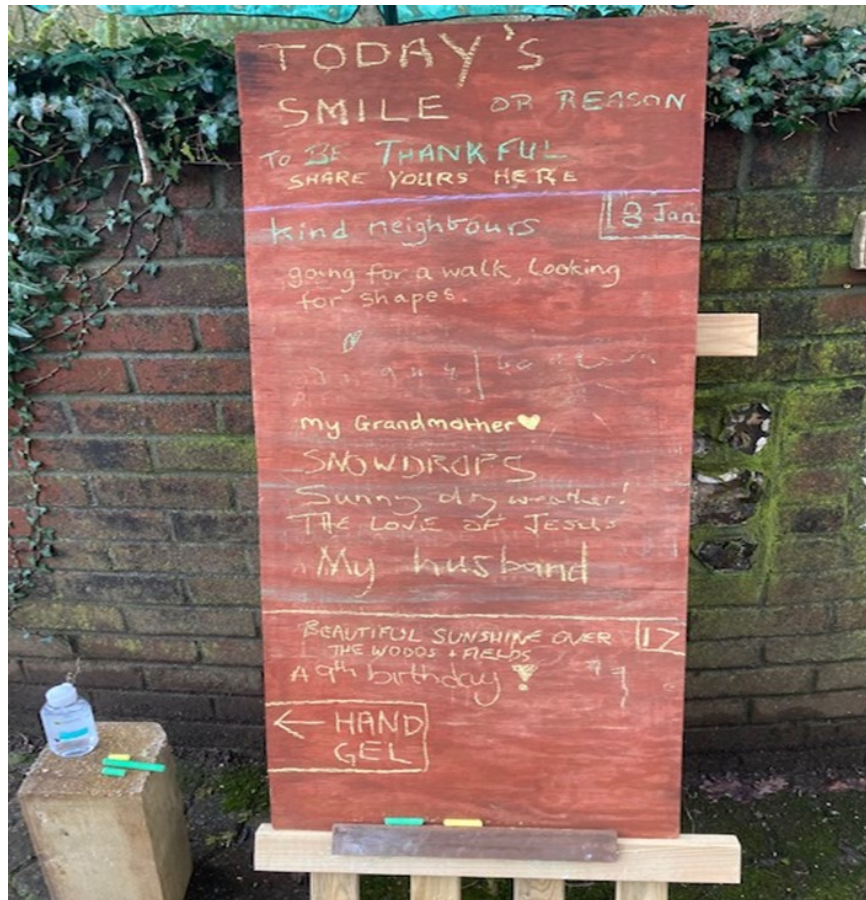 TODAY'S
SMILE OR REASON
TO BE THANKFUL
SHARE YOURS HERE
18 Jan
kind neighbours
going for a walk, looking
for shapes.
my Grandmother♥
SNOWDROPS
Sunny dry weather!
THE LOVE OF JESUS
My husband
BEAUTIFUL SUNSHINE OVER
THE WOODS + FIELDS
17
A 9th birthday!
← HAND
GEL